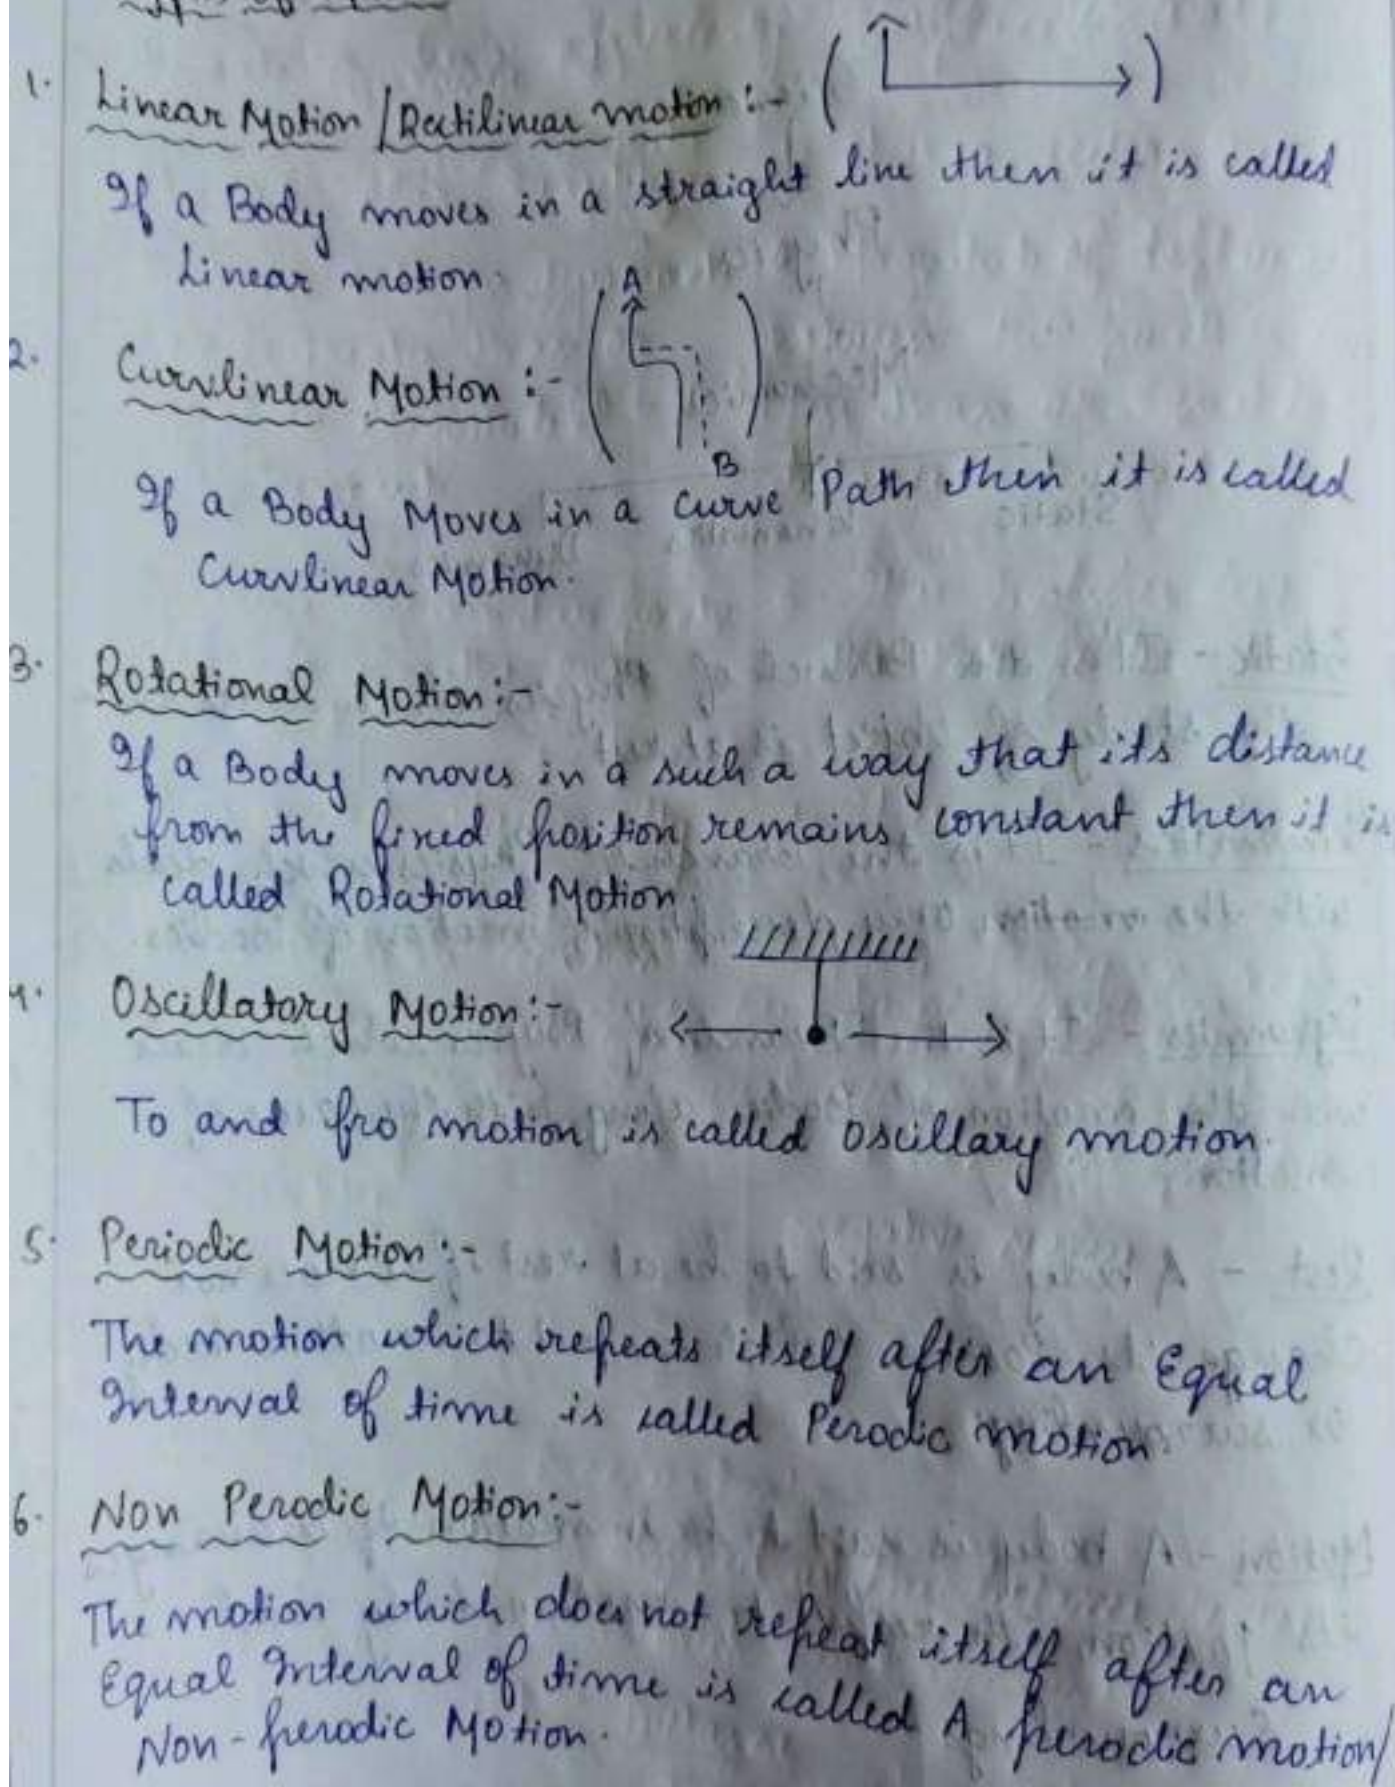 1. Linear Motion / Rectilinear motion :-
If a Body moves in a straight line then it is called
Linear motion.
A
2. Curvlinear Motion :-
B
If a Body Moves in a curve Path then it is called
Curvlinear Motion.
3. Rotational Motion :-
If a Body moves in a such a way that its distance
from the fixed position remains constant then it is
called Rotational Motion.
4. Oscillatory Motion :-
To and fro motion is called oscillary motion.
5. Periodic Motion :-
The motion which repeats itself after an Equal
Interval of time is called Perodic motion
6. Non Perodic Motion :-
The motion which does not repeat itself after an
Equal Interval of time is called A perodic motion/
Non-perodic Motion.